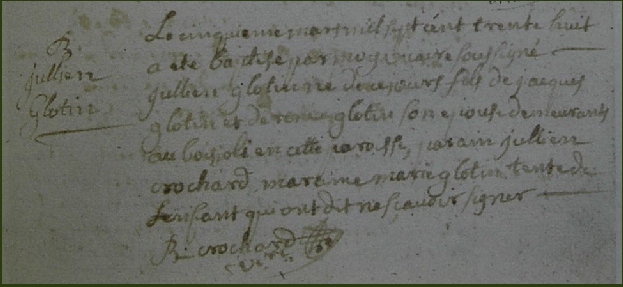 B
jullien
Glotin
Le cinquieme mars mil sept cent trente huit
a eté baptisé par moy vicaire soussigné
jullien glotin né de ce jour fils de jacques
glotin et de renee glotin son epouse demeurants
au bois joli en cette paroisse, parain jullien
crochard, maraine marie glotin tente de
lenfant qui ont dit ne scavoir signer
R crochard
vic.